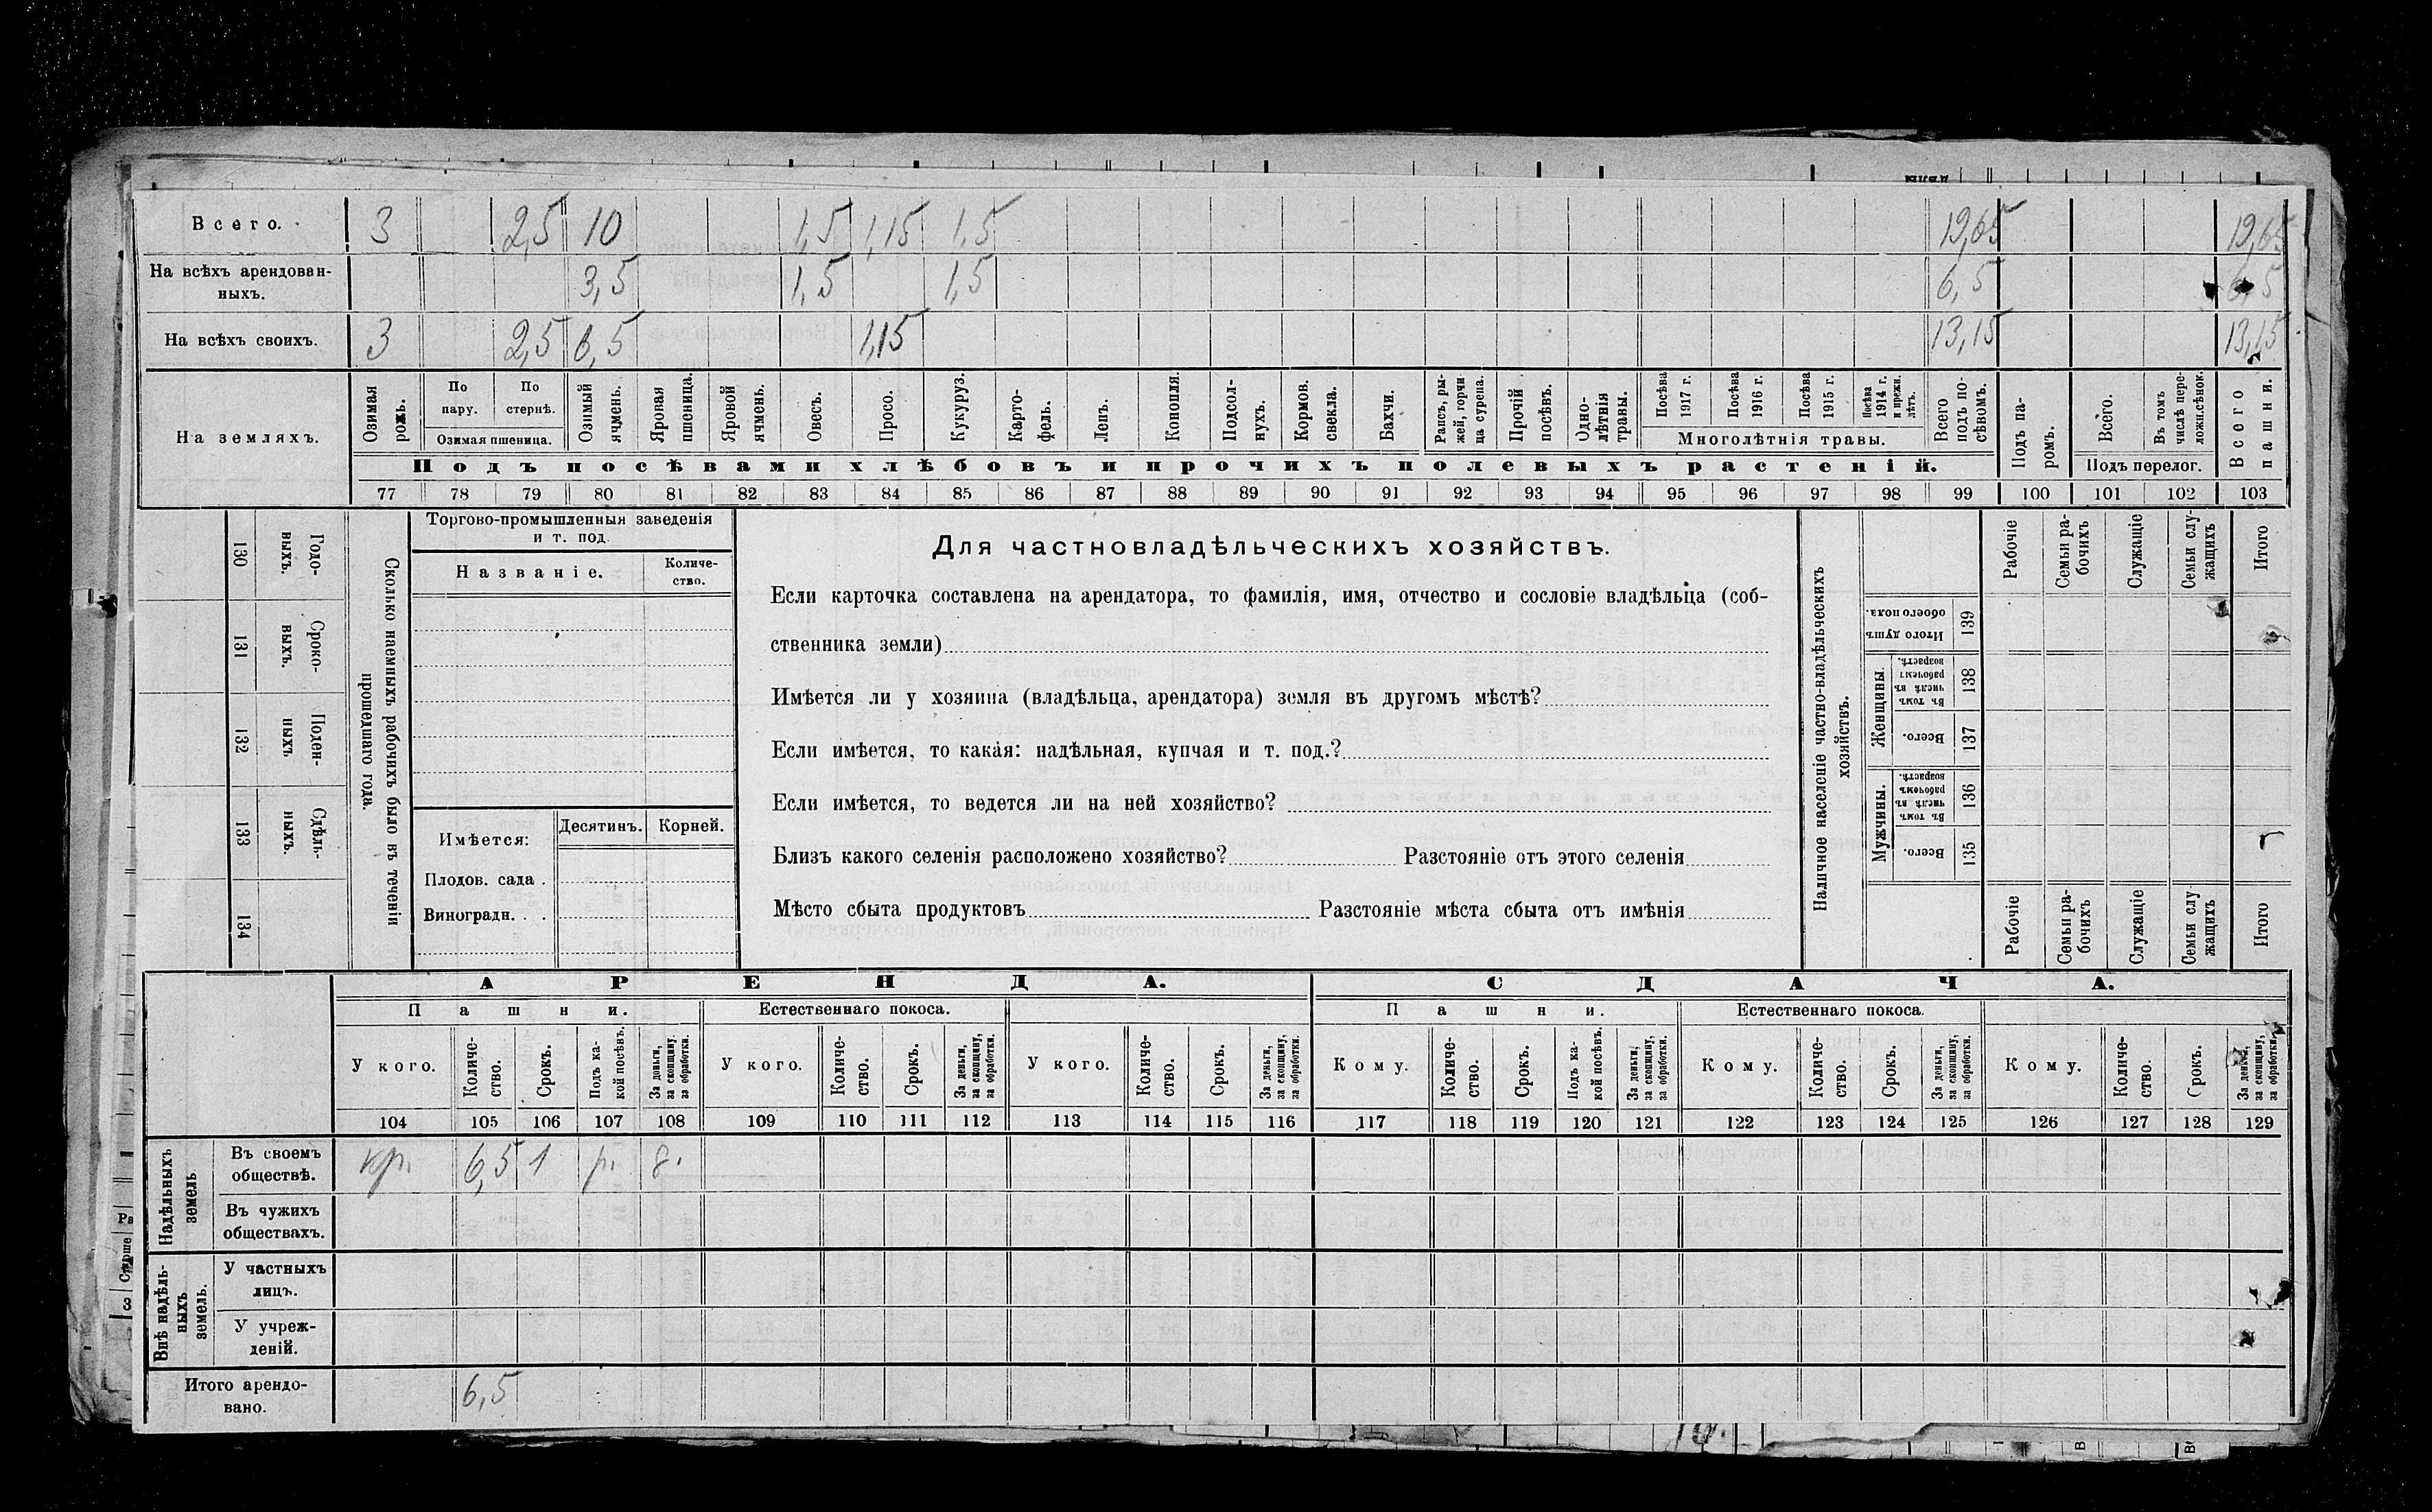 Всего. 3 2,5 10 1,5 1,15 1,5 19,65 19,65
На всѣхъ арендован-
ныхъ. 3,5 1,5 1,5 6,5 6,5
На всѣхъ своихъ. 3 2,5 6,5 1,15 13,15 13,15
На земляхъ.
Озимая рожь.
По пару.
По стернѣ.
Озимая пшеница.
Озимый ячмень.
Яровая пшеница.
Яровой ячмень.
Овесъ.
Просо.
Кукуруз.
Карто-
фель.
Ленъ.
Конопля.
Подсол-
нухъ.
Кормов. свекла.
Бахчи.
Рапсъ, ры-
жей, горчи
ца сурепа.
Прочій посѣвъ.
Одно-
лѣтнія
травы.
Посѣва 1917 г.
Посѣва 1916 г.
Посѣва 1915 г.
Посѣва 1914 г. и прежн. лѣтъ.
Многолѣтнія травы.
Всего подъ по-
сѣвомъ.
Подъ па-
ромъ.
Всего.
Въ томъ числѣ пере-
ложн.сѣнок.
Подъ перелог.
Всего пашни.
Подъ посѣвами хлѣбовъ и прочихъ полевыхъ растеній.
77 78 79 80 81 82 83 84 85 86 87 88 89 90 91 92 93 94 95 96 97 98 99 100 101 102 103
Сколько наемныхъ рабочихъ было въ теченіи
прошедшаго года.
Годо-
выхъ.
130
Сроко-
выхъ.
131
Поден-
ныхъ.
132
Сдѣль-
ныхъ.
133
134
Торгово-промышленныя заведенія
и т. под
Названіе.
Количе-
ство.
Имѣется:
Десятинъ.
Корней.
Плодов. сада .
Виноградн. . .
Для частновладѣльческихъ хозяйствъ.
Если карточка составлена на арендатора, то фамилія, имя, отчество и сословіе владѣльца (соб-
ственника земли)
Имѣется ли у хозяина (владѣльца, арендатора) земля въ другомъ мѣстѣ?
Если имѣется, то какая: надѣльная, купчая и т. под.?
Если имѣется, то ведется ли на ней хозяйство?
Близъ какого селенія расположено хозяйство? Разстояніе отъ этого селенія
Мѣсто сбыта продуктовъ Разстояніе мѣста сбыта отъ имѣнія
Наличное населеніе частно-владѣльческихъ
хозяйствъ.
Рабочіе
Семьи ра-
бочихъ
Служащіе
Семьи слу-
жащихъ
Итого
Итого душъ
обоего пола.
139
Женщины.
Въ томъ
числѣ въ
рабочемъ
возрастѣ.
138
Всего.
137
Мужчины.
Въ томъ
числѣ въ
рабочемъ
возрастѣ.
136
Всего.
135
Рабочіе
Семьи ра-
бочихъ
Служащіе
Семьи слу
жащихъ
Итого
АРЕНДА. СДАЧА.
Пашни. Естественнаго покоса. Пашни. Естественнаго покоса.
У кого.
Количе-
ство.
Срокъ.
Подъ ка-
кой посѣвъ.
За деньги,
за скопщину,
за обработки.
У кого.
Количе-
ство.
Срокъ.
За деньги,
за скопщину,
за обработки.
У кого.
Количе-
ство.
Срокъ.
За деньги,
за скопщину,
за обработки.
Кому.
Количе-
ство.
Срокъ.
Подъ ка-
кой посѣвъ.
За деньги,
за скопщину,
за обработки.
Кому.
Количе-
ство.
Срокъ.
За деньги,
за скопщину,
за обработки.
Кому.
Количе-
ство.
Срокъ.
За деньги,
за скопщину,
за обработки.
104 105 106 107 108 109 110 111 112 113 114 115 116 117 118 119 120 121 122 123 124 125 126 127 128 129
Надѣльныхъ
земель
Въ своемъ
обществѣ. кр. 6,5 1 р. д.
Въ чужихъ
обществахъ.
Внѣ надѣль-
ныхъ
земель.
У частныхъ
лицъ.
У учреж-
деній.
Итого арендо-
вано. 6,5